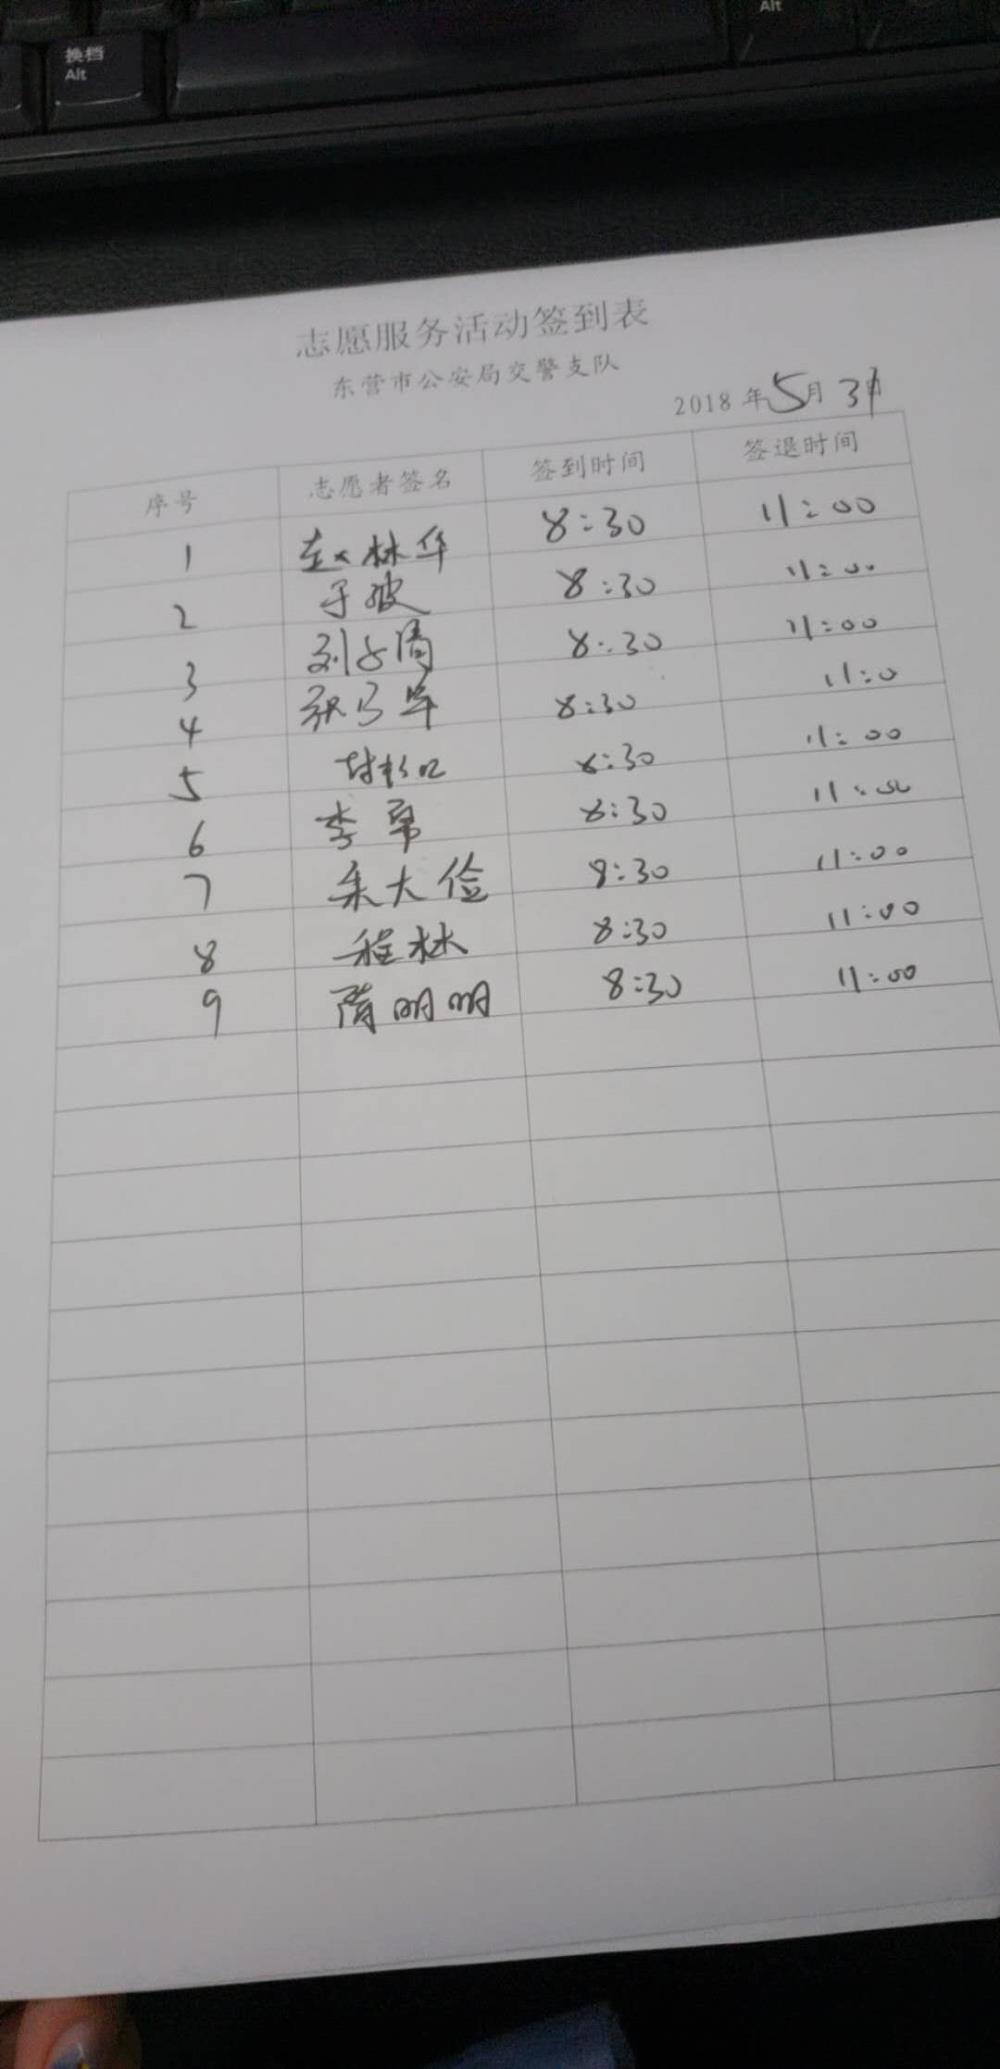 换档
Alt
Alt
志愿服务活动签到表
东营市公安局交警支队
2018年5月31
序号 志愿者签名 签到时间 签退时间
1 赵林华 8:30 11:00
2 于波 8:30 11:00
3 8:30 11:00
4 8:30 11:0
5 8:30 11:00
6 李帛 8:30 11:00
7 朱大俭 8:30 11:00
8 程林 8:30 11:00
9 隋明明 8:30 11:00